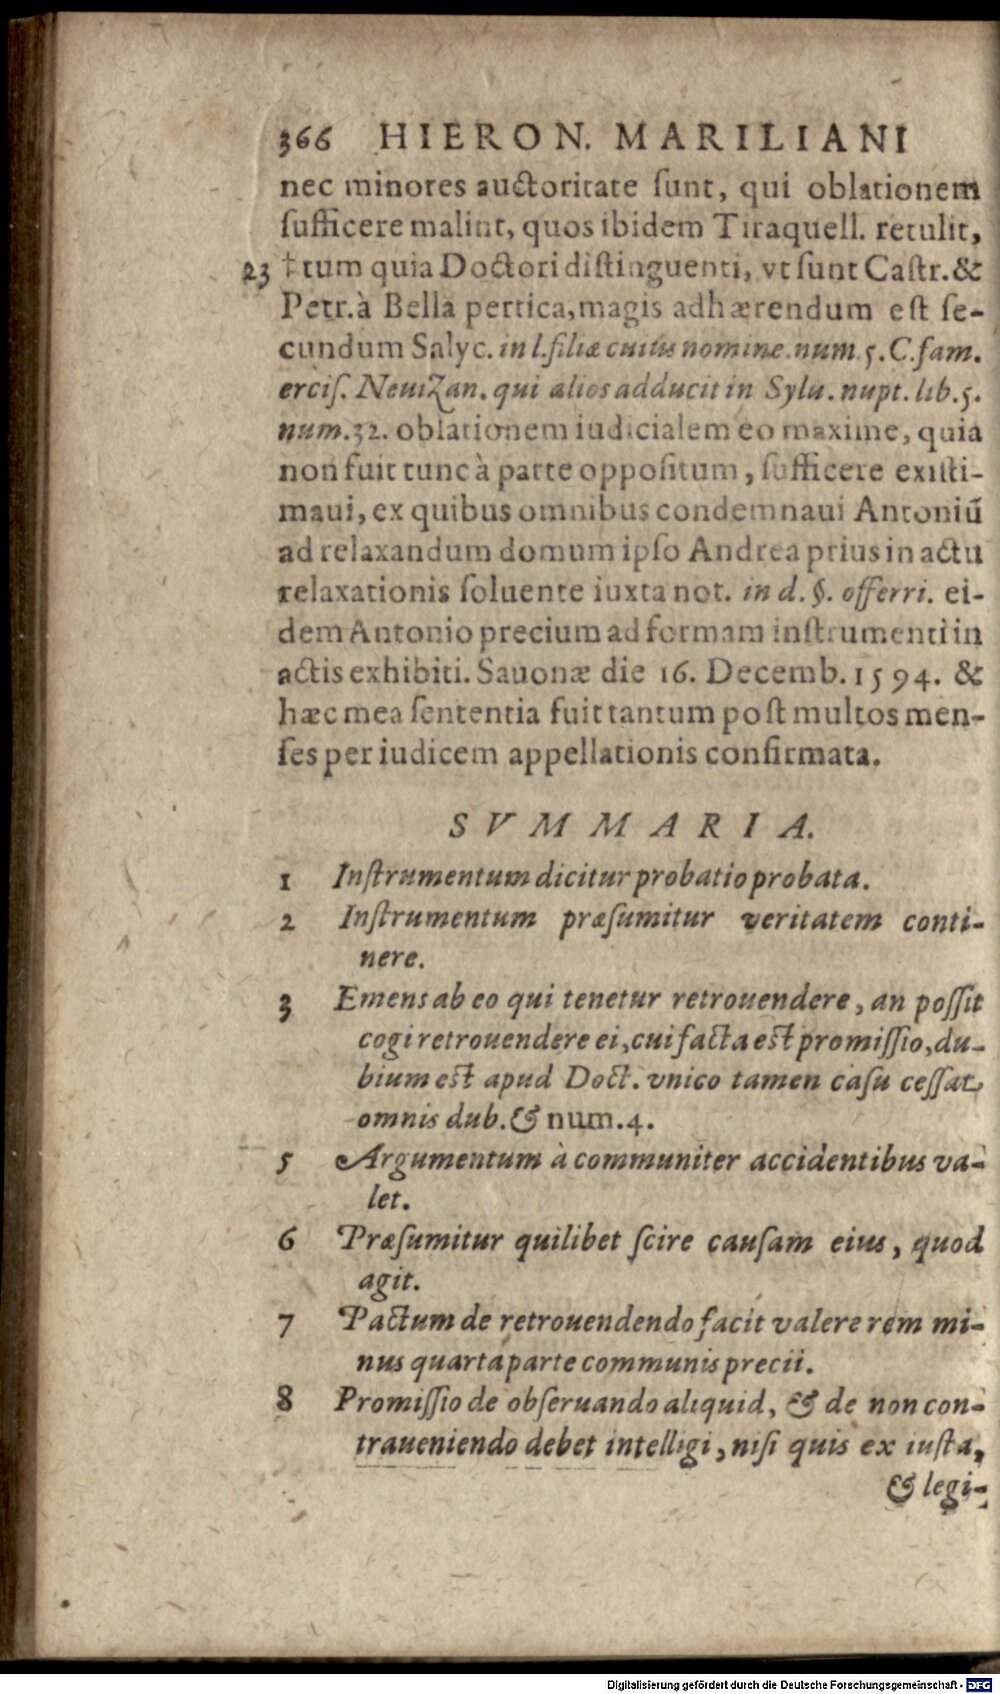 366 HIERON. MARILIANI
nec minores auctoritate ſunt, qui oblationem
ſufficere malint, quos ibidem Tiraquell. retulit,
23 †tum quia Doctori diſtinguenti, vt ſunt Caſtr. &
Petr. à Bella pertica, magis adhærendum eſt ſe-
cundum Salyc. in l. filiæ cuius nomine. num. 5. C. fam.
erciſ. Neuizan. qui alios adducit in Sylu. nupt. lib. 5.
num. 32. oblationem iudicialem eo maxime, quia
non fuit tunc à parte oppoſitum, ſufficere exiſti-
maui, ex quibus omnibus condemnaui Antoniū
ad relaxandum domum ipſo Andrea prius in actu
relaxationis ſoluente iuxta not. in d. §. offerri. ei-
dem Antonio precium ad formam inſtrumenti in
actis exhibiti. Sauonæ die 16. Decemb. 1594. &
hæc mea ſententia fuit tantum poſt multos men-
ſes per iudicem appellationis confirmata.
SVMMARIA.
1 Inſtrumentum dicitur probatio probata.
2 Inſtrumentum præſumitur veritatem conti-
nere.
3 Emens ab eo qui tenetur retrouendere, an poſſit
cogi retrouendere ei, cui facta eſt promiſſio, du-
bium eſt apud Doct. vnico tamen caſu ceſſat
omnis dub. & num. 4.
5 Argumentum à communiter accidentibus va-
let.
6 Præſumitur quilibet ſcire cauſam eius, quod
agit.
7 Pactum de retrouendendo facit valere rem mi-
nus quarta parte communis precii.
8 Promiſſio de obſeruando aliquid, & de non con-
traueniendo debet intelligi, niſi quis ex iuſta,
& legi-
Digitalisierung gefördert durch die Deutsche Forschungsgemeinschaft - DFG